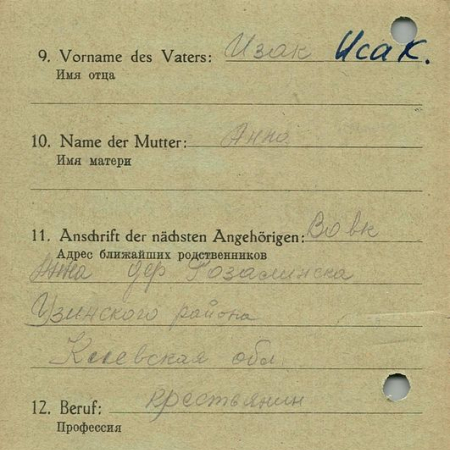 9. Vorname des Vaters: Изак Исак.
Имя отца
10. Name der Mutter: Анна
Имя матери
11. Anschrift der nächsten Angehörigen: Вовк
Адрес ближайших родственников
Анна дер Розалинска
Узинского района
Киевская обл.
12. Beruf: крестьянин
Профессия